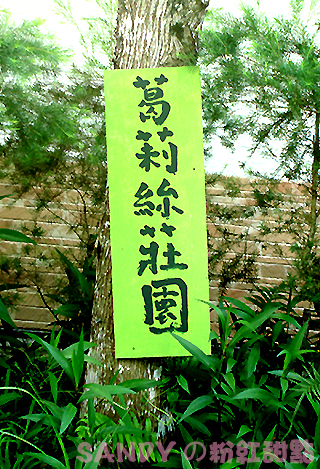 葛莉絲莊園
SANDYの粉紅甜點